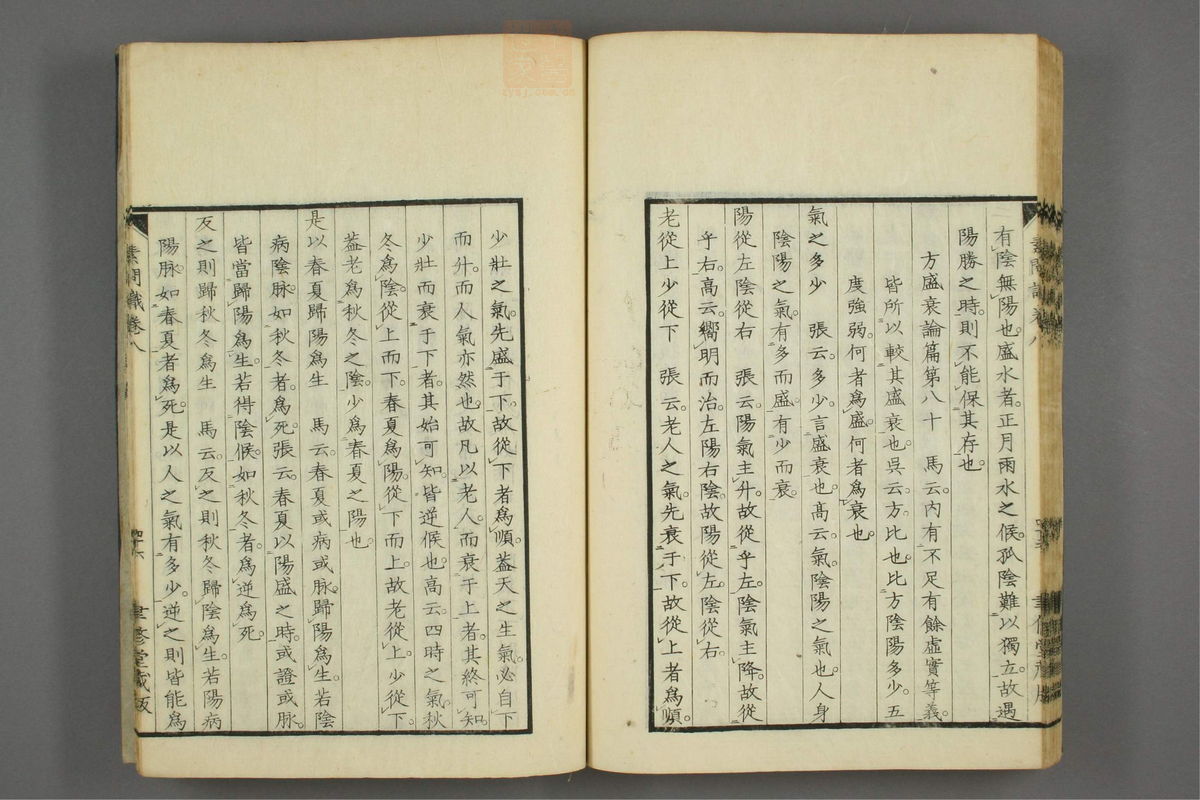 有陰無陽也。盛水者。正月雨水之候。孤陰難以獨立。故遇
陽勝之時。則不能保其存也。
方盛衰論篇第八十　馬云。內有不足有餘虛實等義。
皆所以較其盛衰也。吳云。方。比也。比方陰陽多少。五
度強弱。何者爲盛。何者爲衰也。
氣之多少　張云。多少。言盛衰也。高云。氣。陰陽之氣也。人身
陰陽之氣。有多而盛。有少而衰。
陽從左陰從右　張云。陽氣主升。故從乎左。陰氣主降。故從
乎右。高云。嚮明而治。左陽右陰。故陽從左。陰從右
老從上少從下　張云。老人之氣。先衰于下。故從上者爲順。
少壯之氣。先盛于下。故從下者爲順。蓋天之生氣。必自下
而升。而人氣亦然也。故凡以老人。而衰于上者。其終可知。
少壯而衰于下者。其始可知。皆逆候也。高云。四時之氣。秋
冬爲陰。從上而下。春夏爲陽。從下而上。故老從上。少從下。
蓋老爲秋冬之陰。少爲春夏之陽也。
是以春夏歸陽爲生　馬云。春夏或病或脉。歸陽爲生。若陰
病陰脉。如秋冬者。爲死。張云。春夏以陽盛之時。或證或脉。
皆當歸陽爲生。若得陰候。如秋冬者。爲逆爲死。
反之則歸秋冬爲生　馬云。反之則秋冬歸陰爲生。若陽病
陽脉。如春夏者爲死。是以人之氣有多少。逆之則皆能爲
素問識卷八
聿修堂藏版